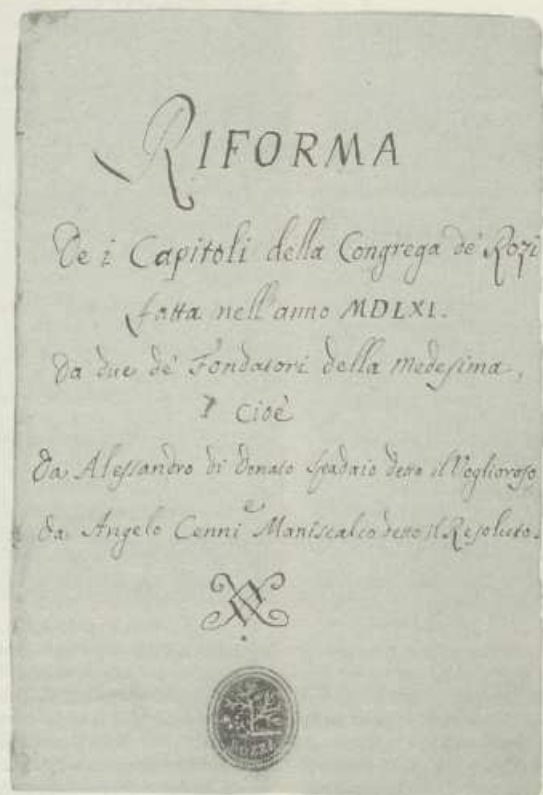 RIFORMA
De i Capitoli della Congrega de' Rozi
fatta nell'anno MDLXI.
Da due de' Fondatori della Medesima,
Cioè
Da Alessandro di Donato Spadaio detto il Voglioroso
e
Da Angelo Cenni Maniscalco detto il Resoluto.
ROZZI